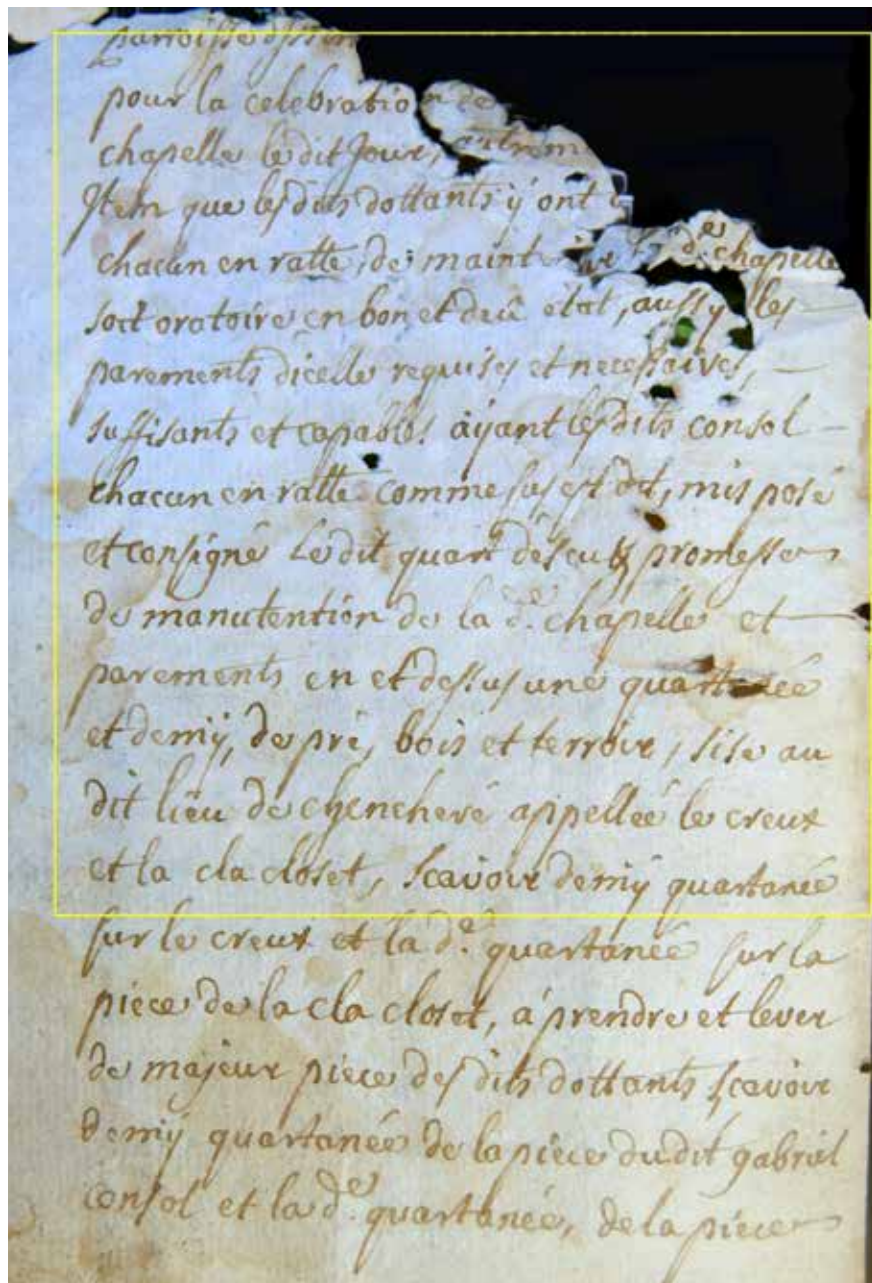 parroisse
pour la celebration de
chapelle le dit Jour, autrem
Item que lesdits dottants y ont
chacun en ratte, de maint de chapelle
soit oratoire en bon et deü état, aussy les
parements dicelle requises et necessaires,
suffisants et capables äyant lesdits consol
chacun en ratte comme sus est dit, mis posé
et consigné le dit quart d'éscutz promesse
de manutention de la d.e chapelle et
parements en et dessus uné quartanée
et demÿ, de pré, bois et terroir, sise au
dit lieu de chencheré appelleé le creux
et la cla closet, scavoir demÿ quartanée
sur le creux et la d.e quartanée sur la
piece de la cla closet, à prendre et lever
de majeur piece des dits dottants scavoir
demÿ quartanée de la piece du dit gabriel
consol et la d.e quartanée, de la piece